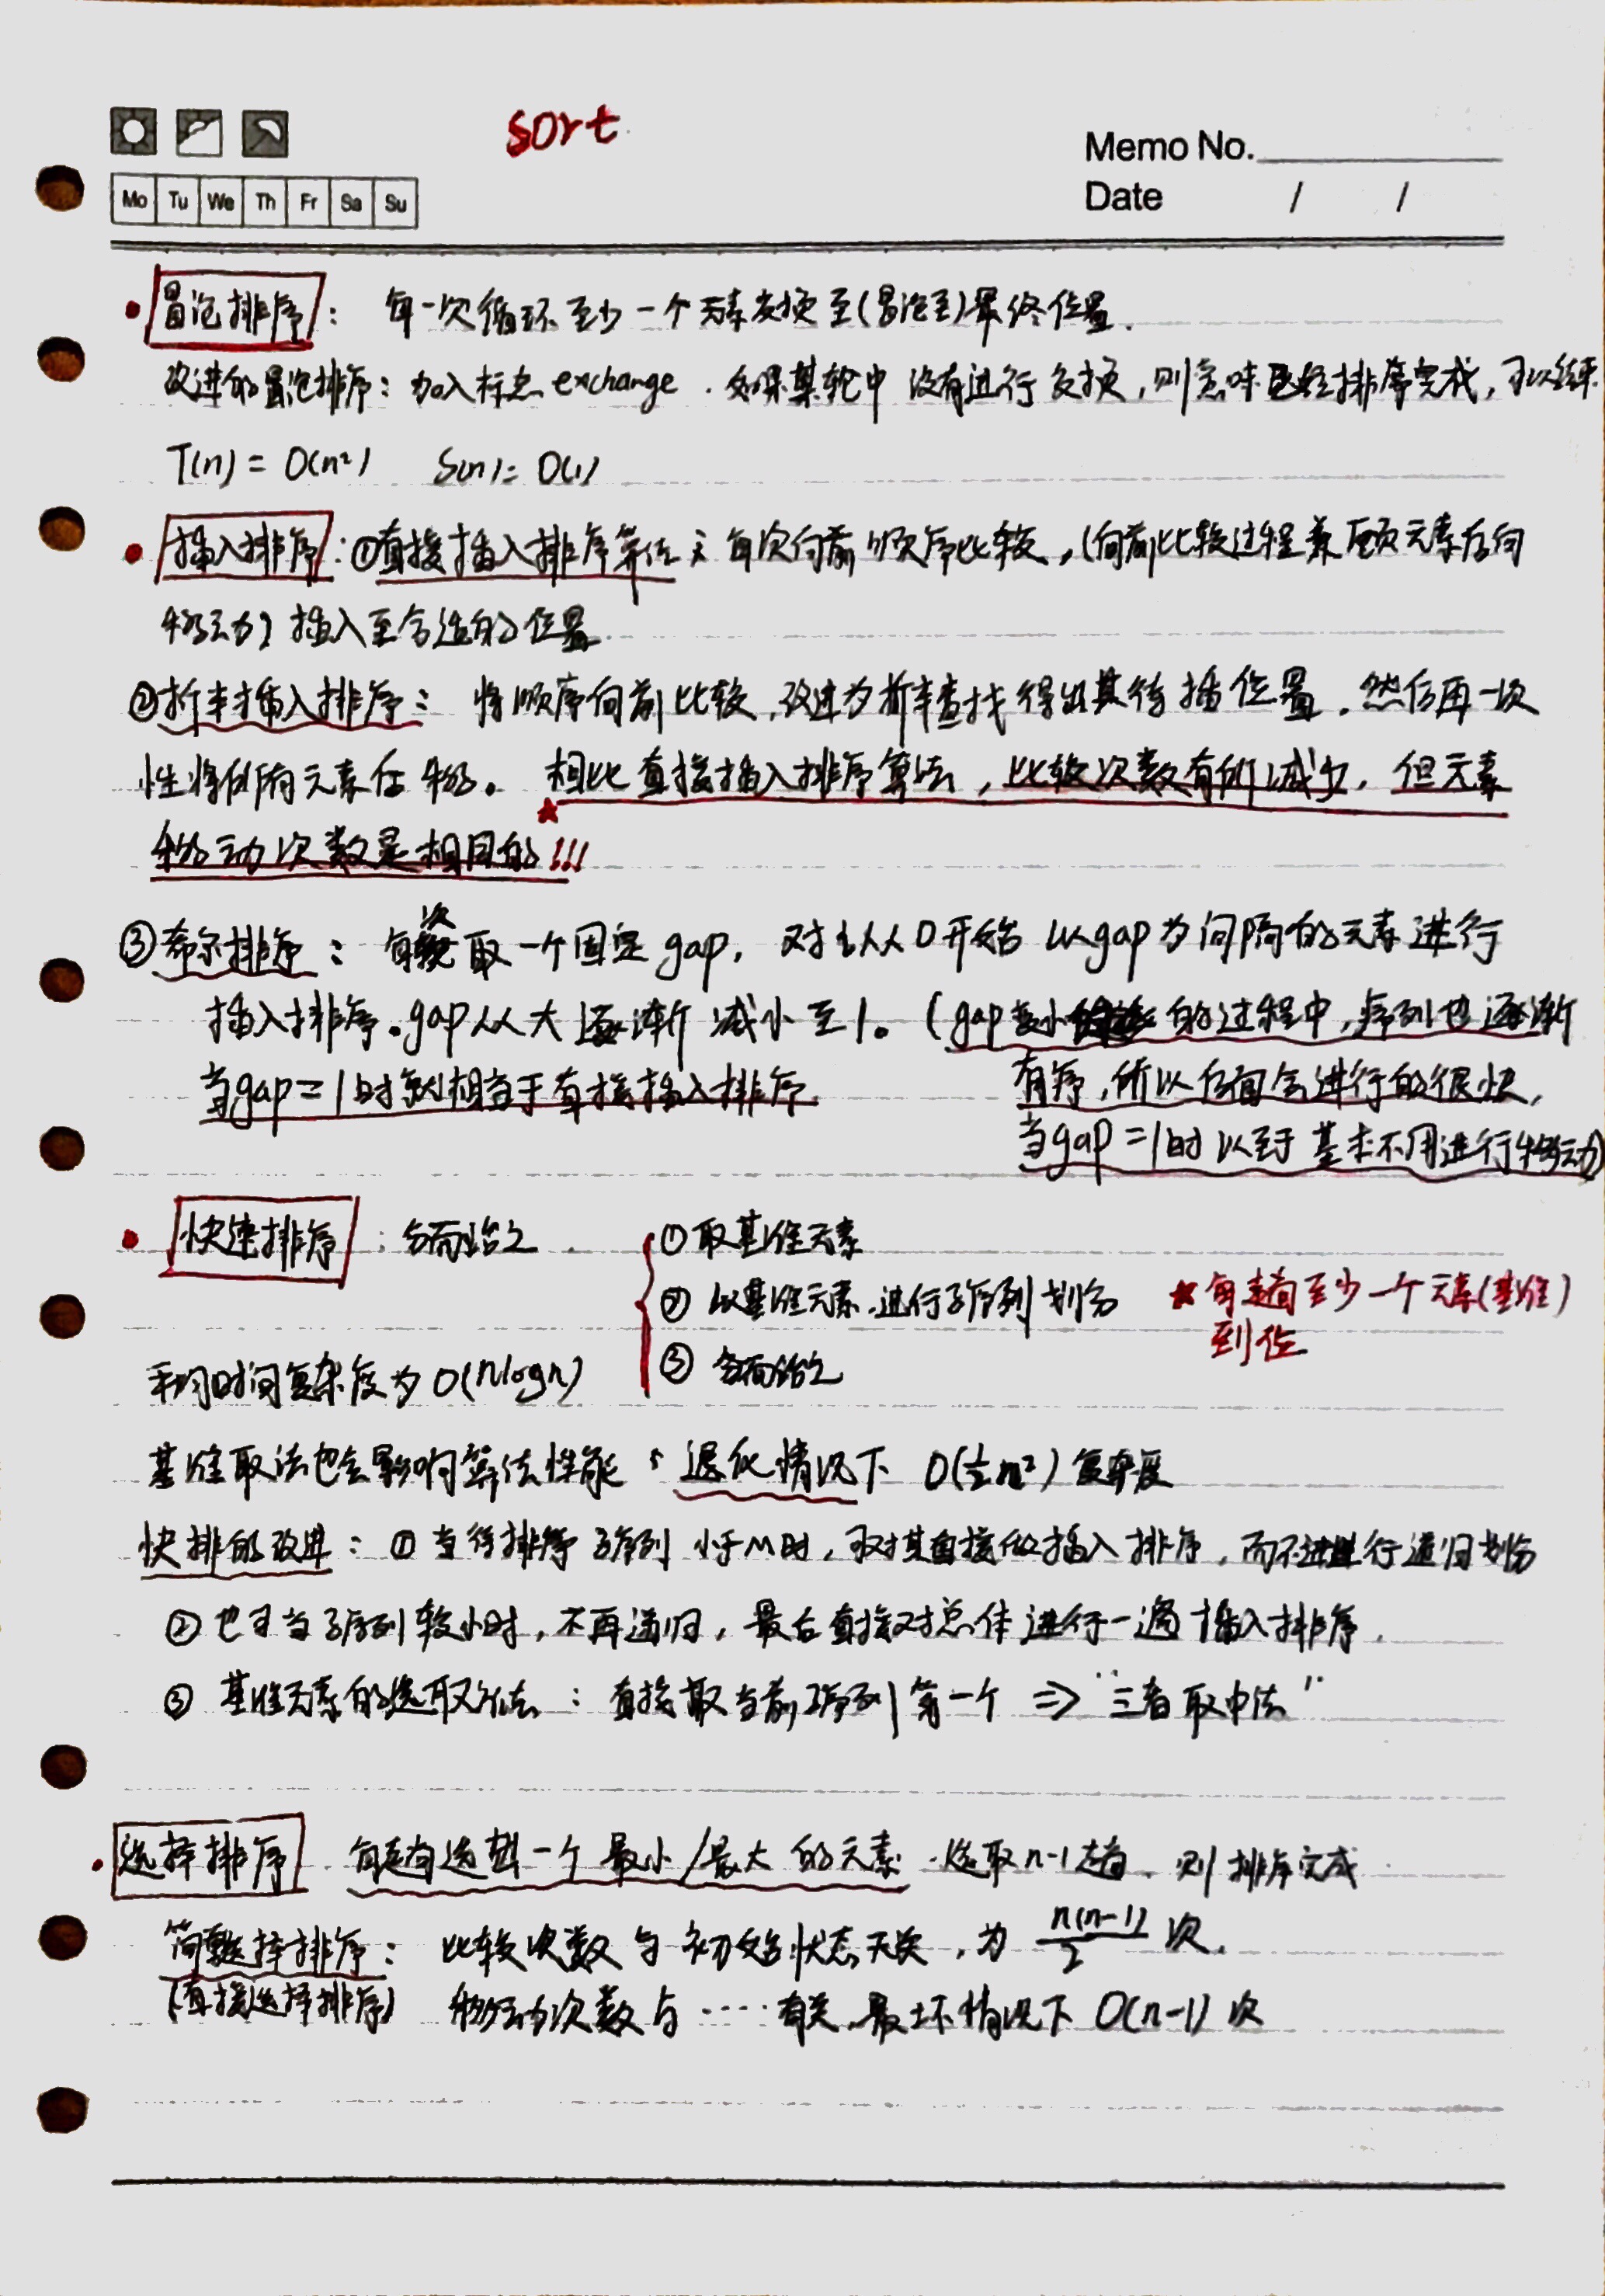 sort
Memo No.
Mo Tu We Th Fr Sa Su
Date / /
冒泡排序: 每一次循环至少一个元素交换至(冒泡至)最终位置.
改进的冒泡排序: 加入标志 exchange. 如果某轮中没有进行交换, 则意味已经排序完成, 可以结束
T(n) = O(n²) S(n) = O(1)
插入排序: ①直接插入排序算法: 每次向前顺序比较, (向前比较过程兼顾元素后向
移动) 插入至合适的位置.
②折半插入排序: 将顺序向前比较, 改进为折半查找得出其待插位置, 然后再一次
性将所有元素后移。 相比直接插入排序算法, 比较次数有所减少, 但元素
移动次数是相同的!!!
③希尔排序: 每次取一个固定gap, 对从0开始以gap为间隔的元素进行
插入排序。gap从大逐渐减小至1。(gap变小的过程中, 序列也逐渐
当gap=1时就相当于直接插入排序. 有序, 所以后面会进行的很快,
当gap=1时以至于基本不用进行移动)
快速排序: 分而治之. ①取基准元素
② 以基准元素进行子序列划分 ★每趟至少一个元素(基准)
到位
平均时间复杂度为O(nlogn) ③ 分而治之
基准取法也会影响算法性能, 退化情况下 O(½n²)复杂度
快排的改进: ① 当待排序子序列小于M时, 对其直接做插入排序, 而不进行递归划分
② 也可当子序列较小时, 不再递归, 最后直接对总体进行一遍插入排序.
③ 基准元素的选取方法: 直接取当前子序列第一个 ⇒ "三者取中法"
选择排序 每趟选出一个最小/最大的元素. 选取n-1趟. 则排序完成
简单选择排序: 比较次数与初始状态无关, 为 n(n-1)/2 次.
(直接选择排序) 移动次数与……有关, 最坏情况下 O(n-1) 次